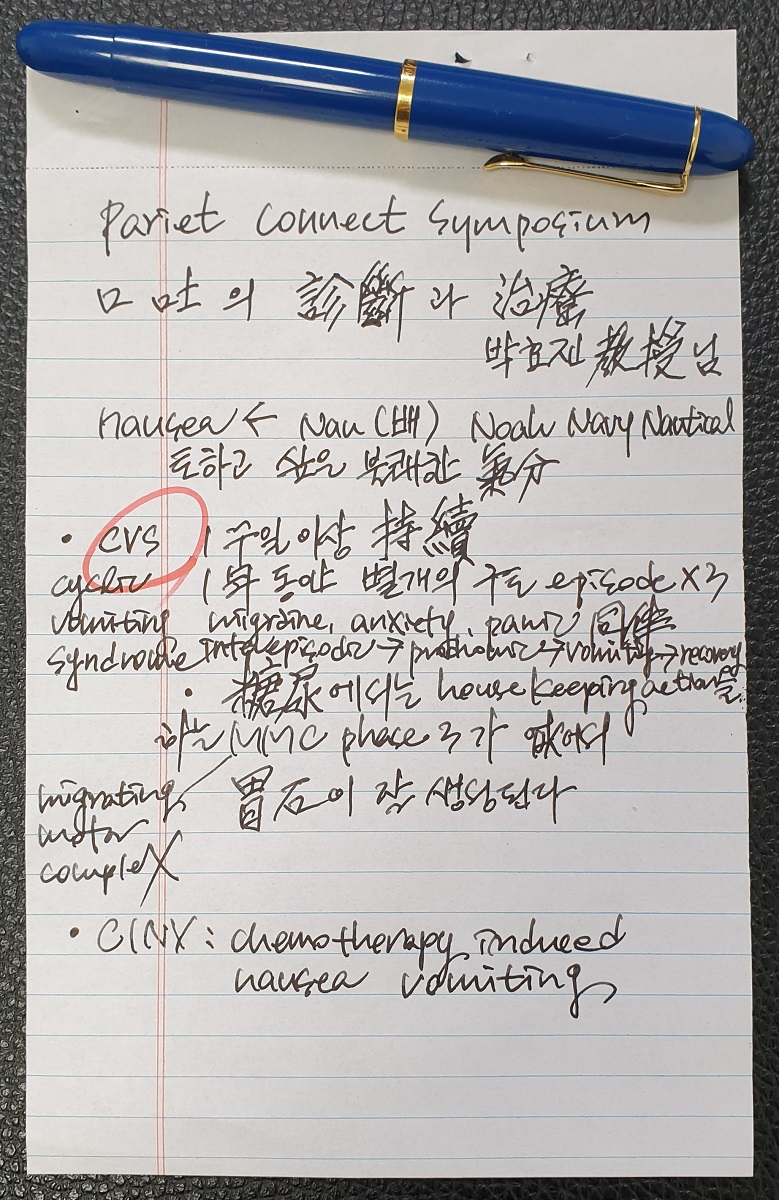 Pariet Connect Symposium
口吐의 診斷과 治療
박효진 敎授님
nausea ← Nau (배) Noah Navy Nautical
토하고 싶은 불쾌한 氣分
• CVS 1주일이상 持續
cyclic 1年 동안 별개의 구토 episode X3
vomiting migraine, anxiety, panic 同伴
syndrome interepisodic → prodromic → vomiting → recovery
• 糖尿에서는 housekeeping action을
하는 MMC phase 3가 없어서
migrating 胃石이 잘 생성된다
motor
complex
• CINV : chemotherapy induced
nausea vomiting